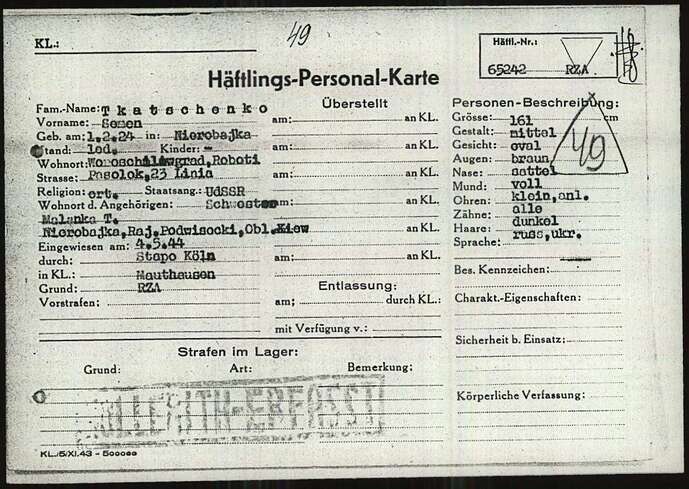 KL.:
49
Häftl.-Nr.:
65242 RZA
Häftlings-Personal-Karte
Fam.-Name: Tkatschenko
Vorname: Semen
Geb. am: 1.2.24 in: Nierobajka
Stand: led. Kinder: -
Wohnort: Woroschilowgrad, Roboti
Strasse: Posolok, 23 Linia
Religion: ort. Staatsang.: UdSSR
Wohnort d. Angehörigen: Schwester
Malanka T.
Nierobajka, Raj. Podwisocki, Obl. Kiew
Eingewiesen am: 4.5.44
durch: Stapo Köln
in KL.: Mauthausen
Grund: RZA
Vorstrafen:
Überstellt
am: an KL.
am: an KL.
am: an KL.
am: an KL.
am: an KL.
am: an KL.
Entlassung:
am: durch KL.:
mit Verfügung v.:
Personen-Beschreibung:
Grösse: 161 cm
Gestalt: mittel
Gesicht: oval
Augen: braun
Nase: sattel
Mund: voll
Ohren: klein, anl.
Zähne: alle
Haare: dunkel
Sprache: russ, ukr.
49
Bes. Kennzeichen:
Charakt.-Eigenschaften:
Sicherheit b. Einsatz:
Körperliche Verfassung:
Strafen im Lager:
Grund: Art: Bemerkung:
HOLLERITH-ERFASST
KL/5/XI.43 - 500000